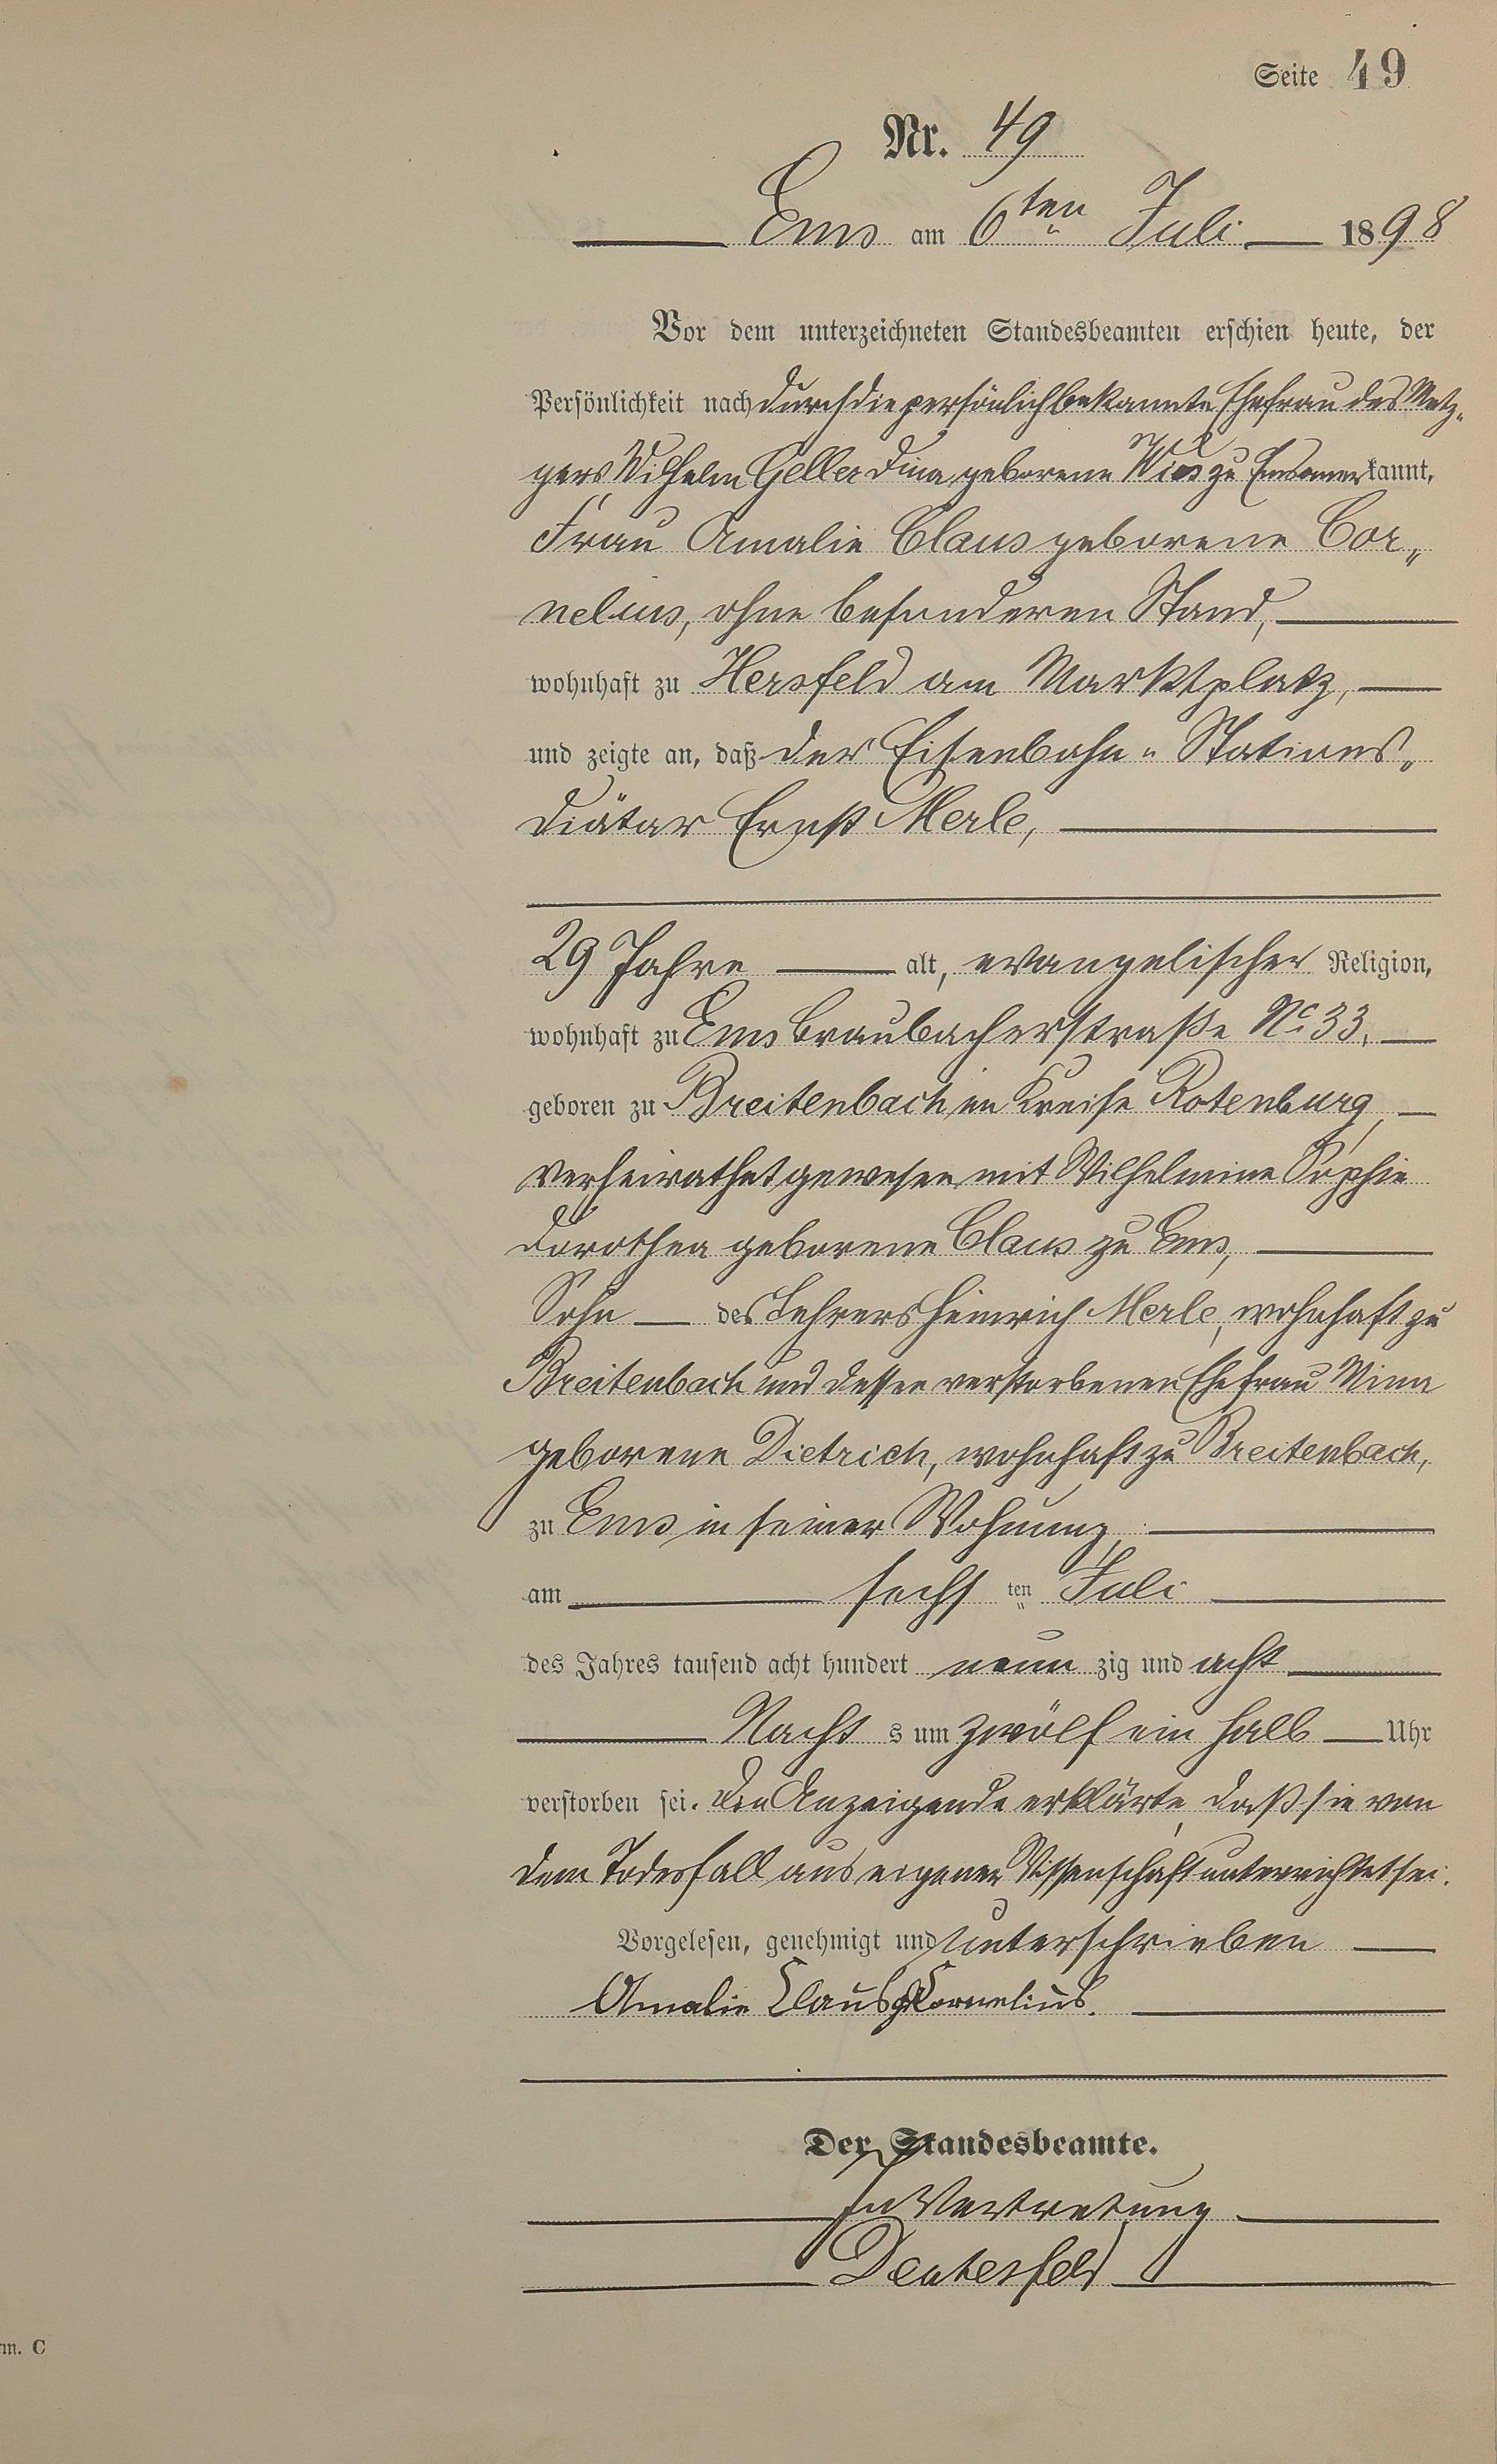 Seite 49
Nr. 49
Ems am 6ten Juli 1898
Vor dem unterzeichneten Standesbeamten erschien heute, der
Persönlichkeit nach durch die persönlich bekannte Ehefrau des Metz-
gers Wilhelm Geller Dina geborene zu Ems anerkannt,
Frau Amalie Claus geborene Cor-
nelius, ohne besonderen Stand,
wohnhaft zu Hersfeld am Marktplatz,
und zeigte an, daß der Eisenbahn-Stations-
diätar Ernst Merle,
29 Jahre alt, evangelischer Religion,
wohnhaft zu Ems Braubacherstraße No 33,
geboren zu Breitenbach im Kreise Rotenburg,
verheirathet gewesen mit Wilhelmine Sophie
Dorothea geborene Claus zu Ems,
Sohn des Lehrers Heinrich Merle, wohnhaft zu
Breitenbach und dessen verstorbenen Ehefrau Mina
geborene Dietrich, wohnhaft zu Breitenbach,
zu Ems in seiner Wohnung,
am sechs ten Juli
des Jahres tausend acht hundert neun zig und acht
Nacht s um zwölf ein halb Uhr
verstorben sei. Die Anzeigende erklärte, daß sie von
dem Todesfall aus eigener Wissenschaft unterrichtet sei.
Vorgelesen, genehmigt und unterschrieben
Amalie Claus g. Cornelius.
Der Standesbeamte.
In Vertretung
m. C